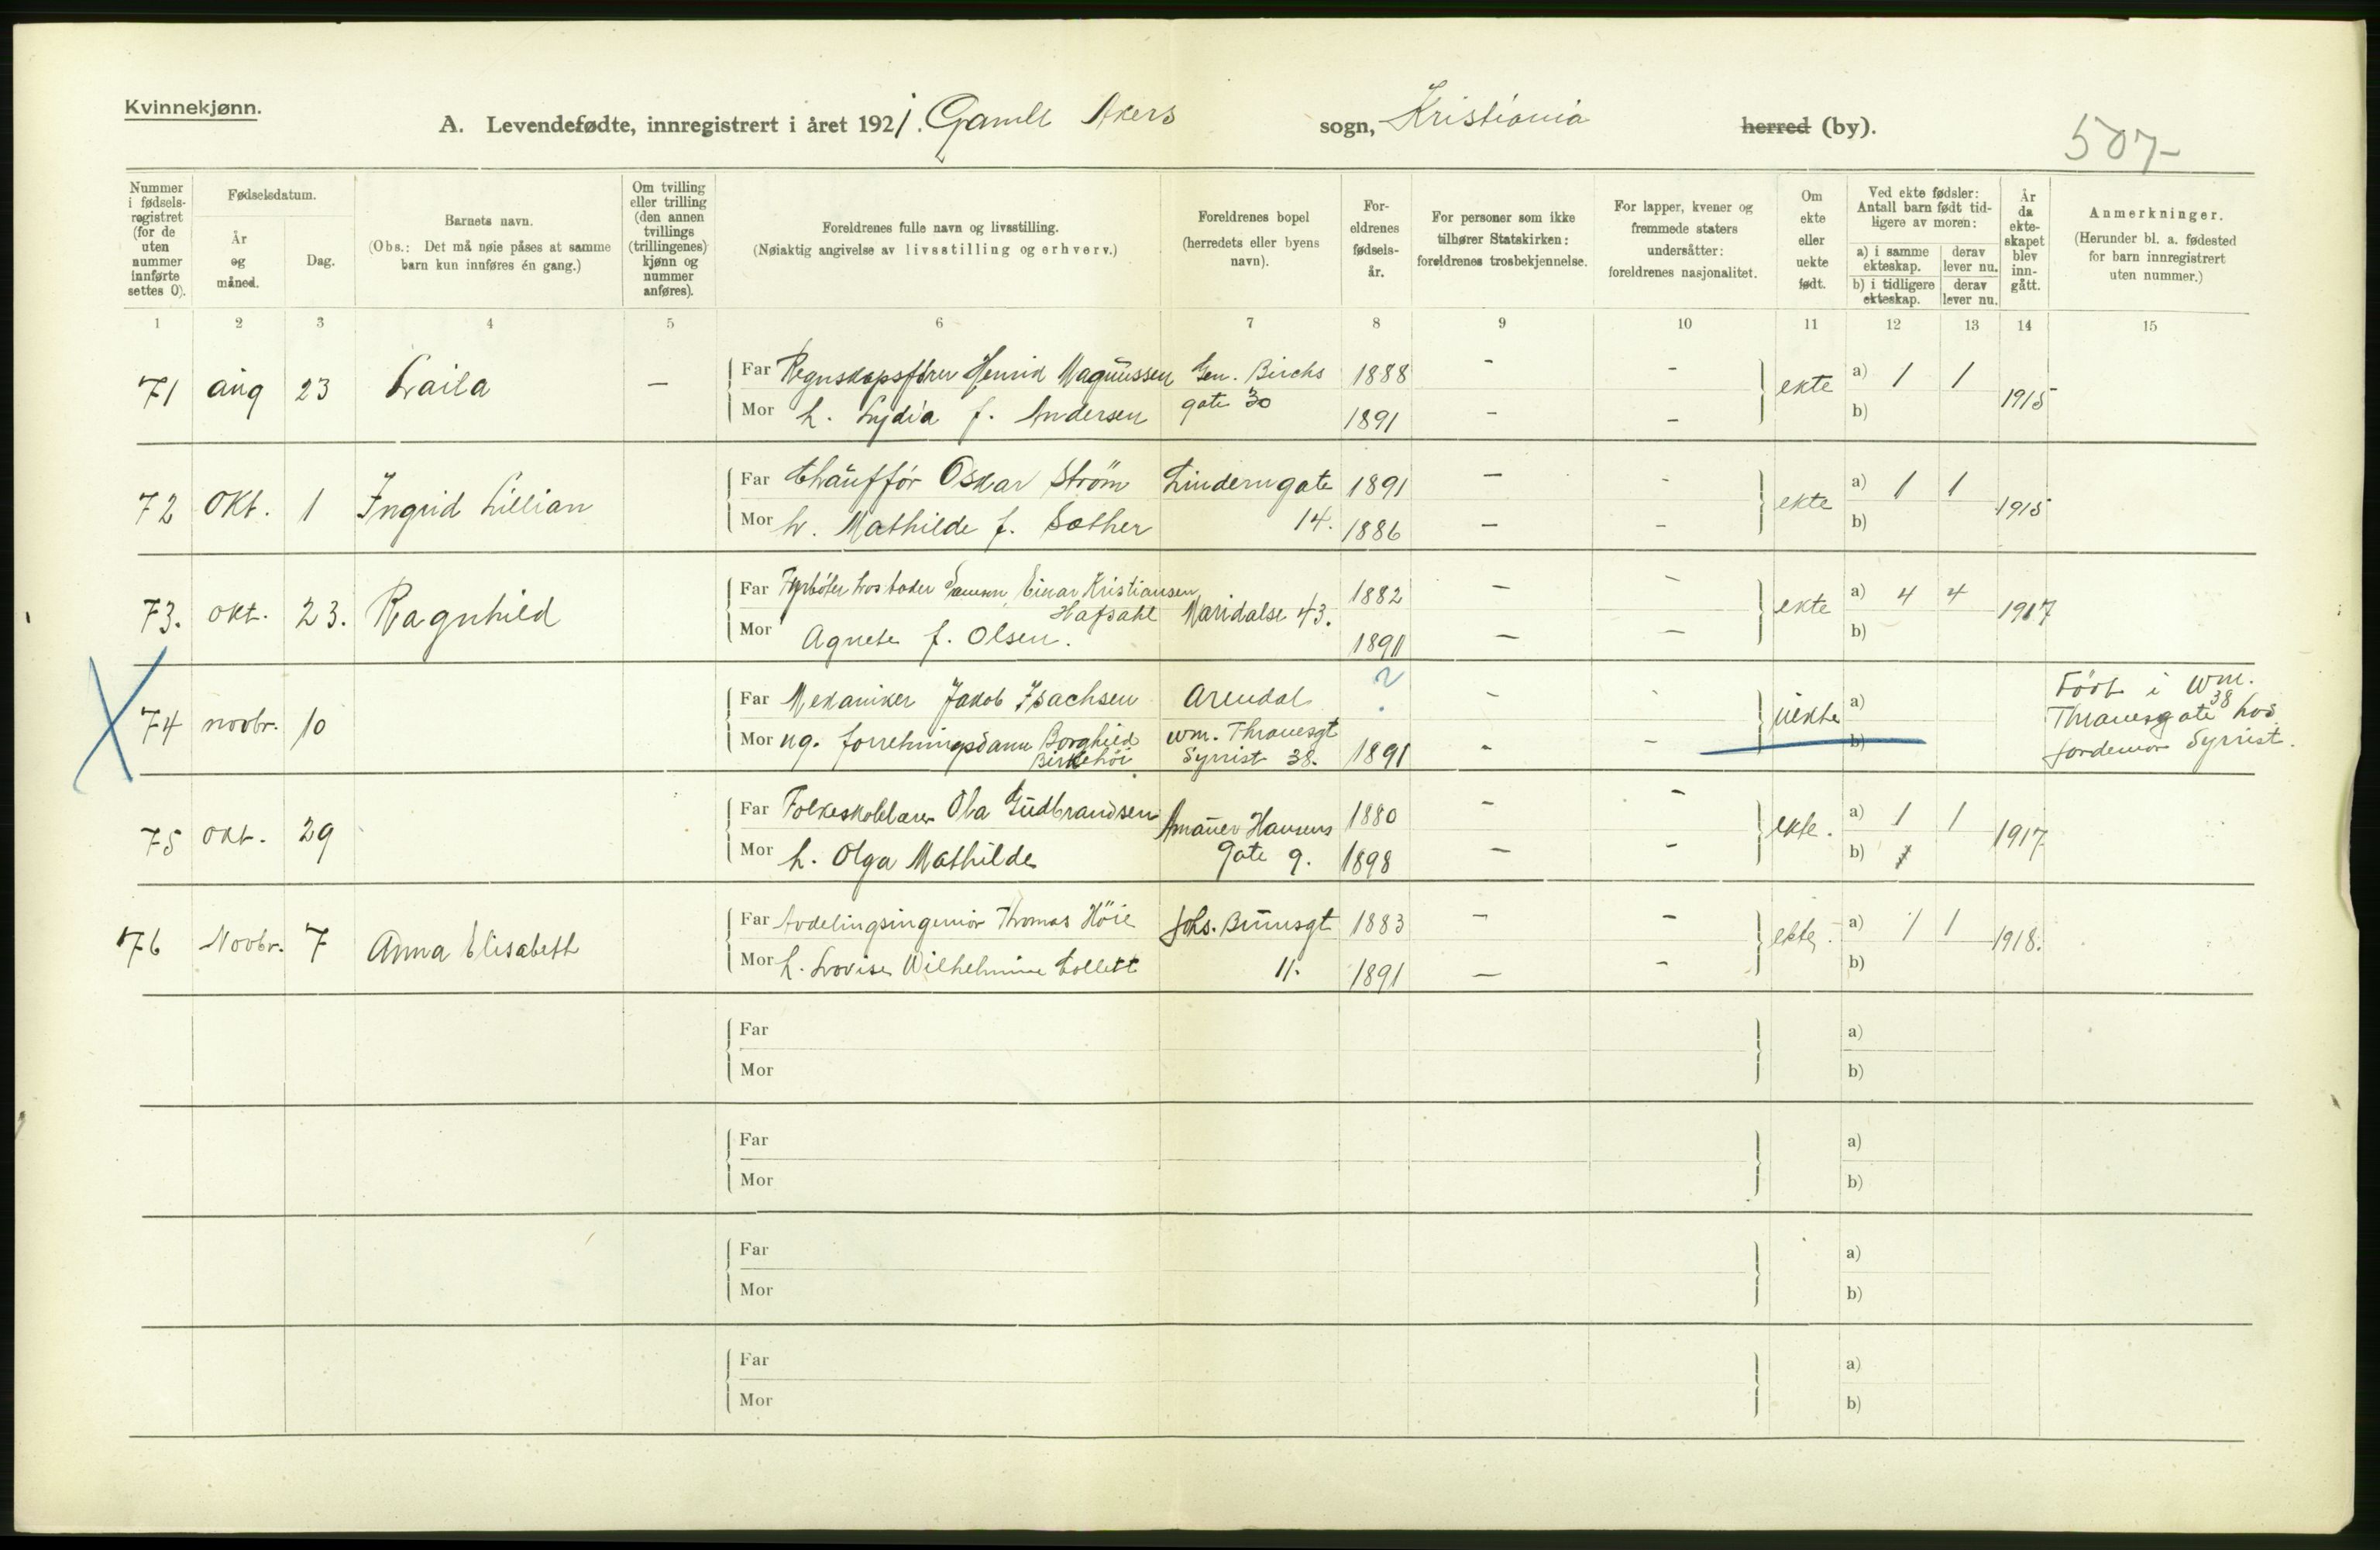 Kvinnekjønn.
A. Levendefødte, innregistrert i året 1921. Gamle Akers sogn, Kristiania herred (by).
507-
Nummer i fødsels-registret (for de uten nummer innførte settes 0).
Fødselsdatum.
År og måned.
Dag.
Barnets navn.
(Obs.: Det må nøie påses at samme barn kun innføres én gang.)
Om tvilling eller trilling (den annen tvillings (trillingenes) kjønn og nummer anføres).
Foreldrenes fulle navn og livsstilling.
(Nøiaktig angivelse av livsstilling og erhverv.)
Foreldrenes bopel (herredets eller byens navn).
For-eldrenes fødsels-år.
For personer som ikke tilhører Statskirken: foreldrenes trosbekjennelse.
For lapper, kvener og fremmede staters undersåtter: foreldrenes nasjonalitet.
Om ekte eller uekte født.
Ved ekte fødsler: Antall barn født tid-ligere av moren:
a) i samme ekteskap.
derav lever nu.
b) i tidligere ekteskap.
derav lever nu.
År da ekte-skapet blev inn-gått.
Anmerkninger.
(Herunder bl. a. fødested for barn innregistrert uten nummer.)
1 2 3 4 5 6 7 8 9 10 11 12 13 14 15
71 aug 23 Laila — Far Regnskapsfører Henrik Magnussen Gen. Birchs 1888 - - ekte a) 1 1 1915
Mor h. Lydia f. Andersen gate 30 1891 - - b)
72 Okt. 1 Ingrid Lillian Far Chauffør Oskar Strøm Linderngate 1891 - - ekte a) 1 1 1915
Mor h. Mathilde f. Sæther 14. 1886 - - b)
73. okt. 23. Ragnhild Far Fyrbøter Einar Kristiansen 1882 - - ekte a) 4 4 1917
Hafsahl Maridalse 43.
Mor Agnete f. Olsen. 1891 - - b)
74 novbr. 10 Far Mekaniker Jakob Isachsen Arendal ? - - uekte a)
Mor ug. forretningsdame Borghild Wm. Thranesgt 1891 - - b)
Birkehöi Syrrist 38.
Födt i Wm.
Thranesgate 38 hos
jordemor Syrrist.
75 okt. 29 Far Folkeskolelærer Ola Gudbrandsen 1880 - - ekte. a) 1 1 1917
Hansens
Mor h. Olga Mathilde gate 9. 1898 - - b)
76 Novbr. 7 Anna Elisabeth Far Avdelingsingeniør Thomas Höie Johs. Brunsgt 1883 - - ekte. a) 1 1 1918.
Mor h. Lovise Wilhelmine Collett 11. 1891 - - b)
Far a)
Mor b)
Far a)
Mor b)
Far a)
Mor b)
Far a)
Mor b)